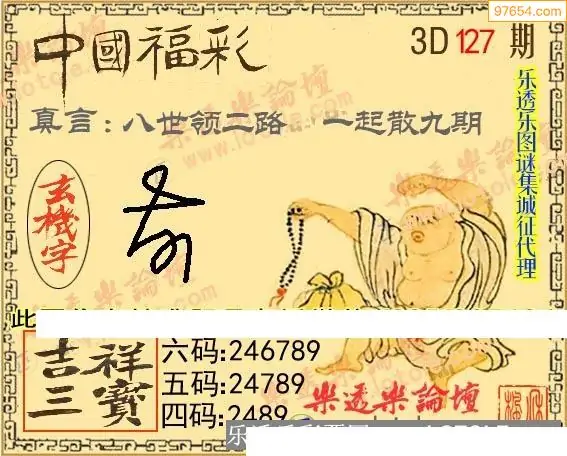 97654.com
中國福彩
3D 127 期
真言:八世领二路 一起散九期
乐透乐图谜集城征代理
玄機字
吉祥三寶
六码:246789
五码:24789
四码:2489
樂透樂論壇